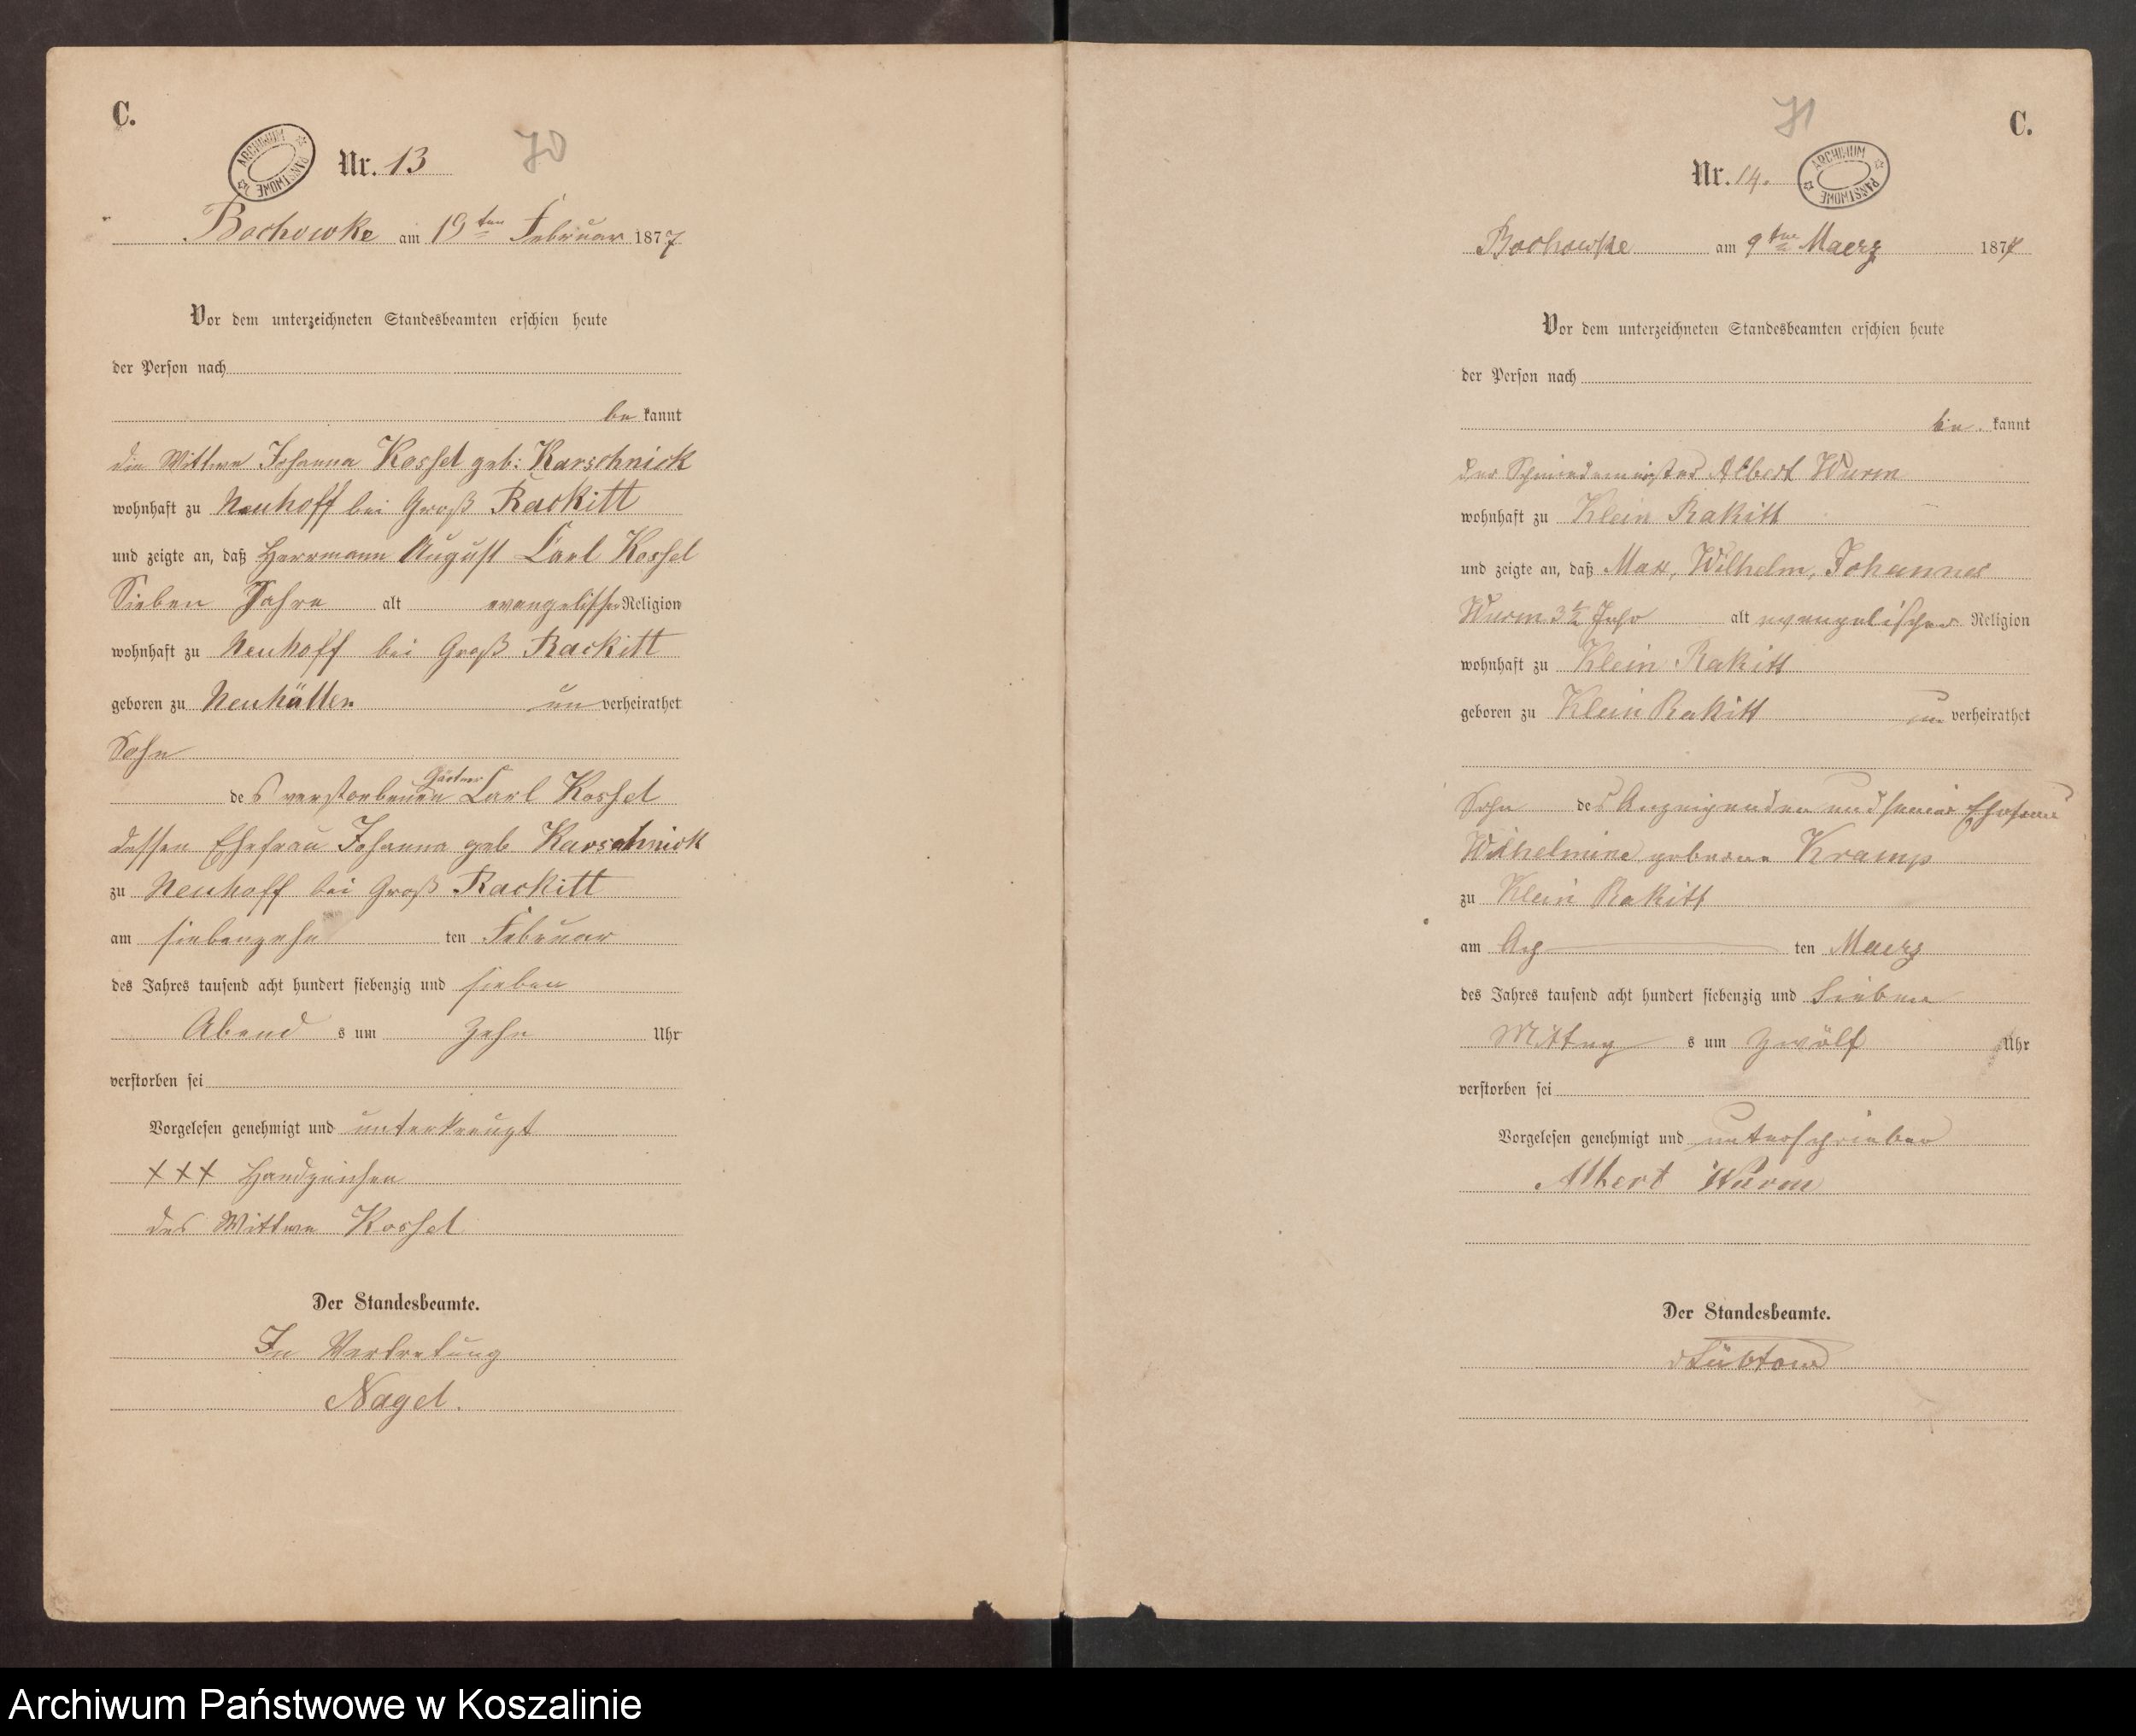 C.
ARCHIWUM PAŃSTWOWE
Nr. 13
70
Bochowke am 19ten Februar 1877
Vor dem unterzeichneten Standesbeamten erschien heute
der Person nach
be kannt
die Wittwe Johanna Kossel geb: Karschnick
wohnhaft zu Neuhoff bei Groß Rackitt
und zeigte an, daß Herrmann August Carl Kossel
Sieben Jahre alt evangelischer Religion
wohnhaft zu Neuhoff bei Groß Rackitt
geboren zu Neuhütten un verheirathet
Sohn
Gärtner
des verstorbenen Carl Kossel
dessen Ehefrau Johanna geb Karschnick
zu Neuhoff bei Groß Rackitt
am siebenzehn ten Februar
des Jahres tausend acht hundert siebenzig und sieben
Abend s um Zehn Uhr
verstorben sei
Vorgelesen genehmigt und unterkreuzt
+++ Handzeichen
der Wittwe Kossel
Der Standesbeamte.
In Vertretung
Nagel.
71
C.
Nr. 14.
ARCHIWUM PAŃSTWOWE
Bochowke am 9ten Maerz 1877
Vor dem unterzeichneten Standesbeamten erschien heute
der Person nach
be kannt
der Schmiedemeister Albert Wurm
wohnhaft zu Klein Rakitt
und zeigte an, daß Max, Wilhelm, Johannes
Wurm 3½ Jahr alt evangelischer Religion
wohnhaft zu Klein Rakitt
geboren zu Klein Rakitt un verheirathet
Sohn des Anzeigenden und seiner Ehefrau
Wilhelmine geborne Kramp
zu Klein Rakitt
am Ach ten Maerz
des Jahres tausend acht hundert siebenzig und Sieben
Mittag s um Zwölf Uhr
verstorben sei
Vorgelesen genehmigt und unterschrieben
Albert Wurm
Der Standesbeamte.
Archiwum Państwowe w Koszalinie